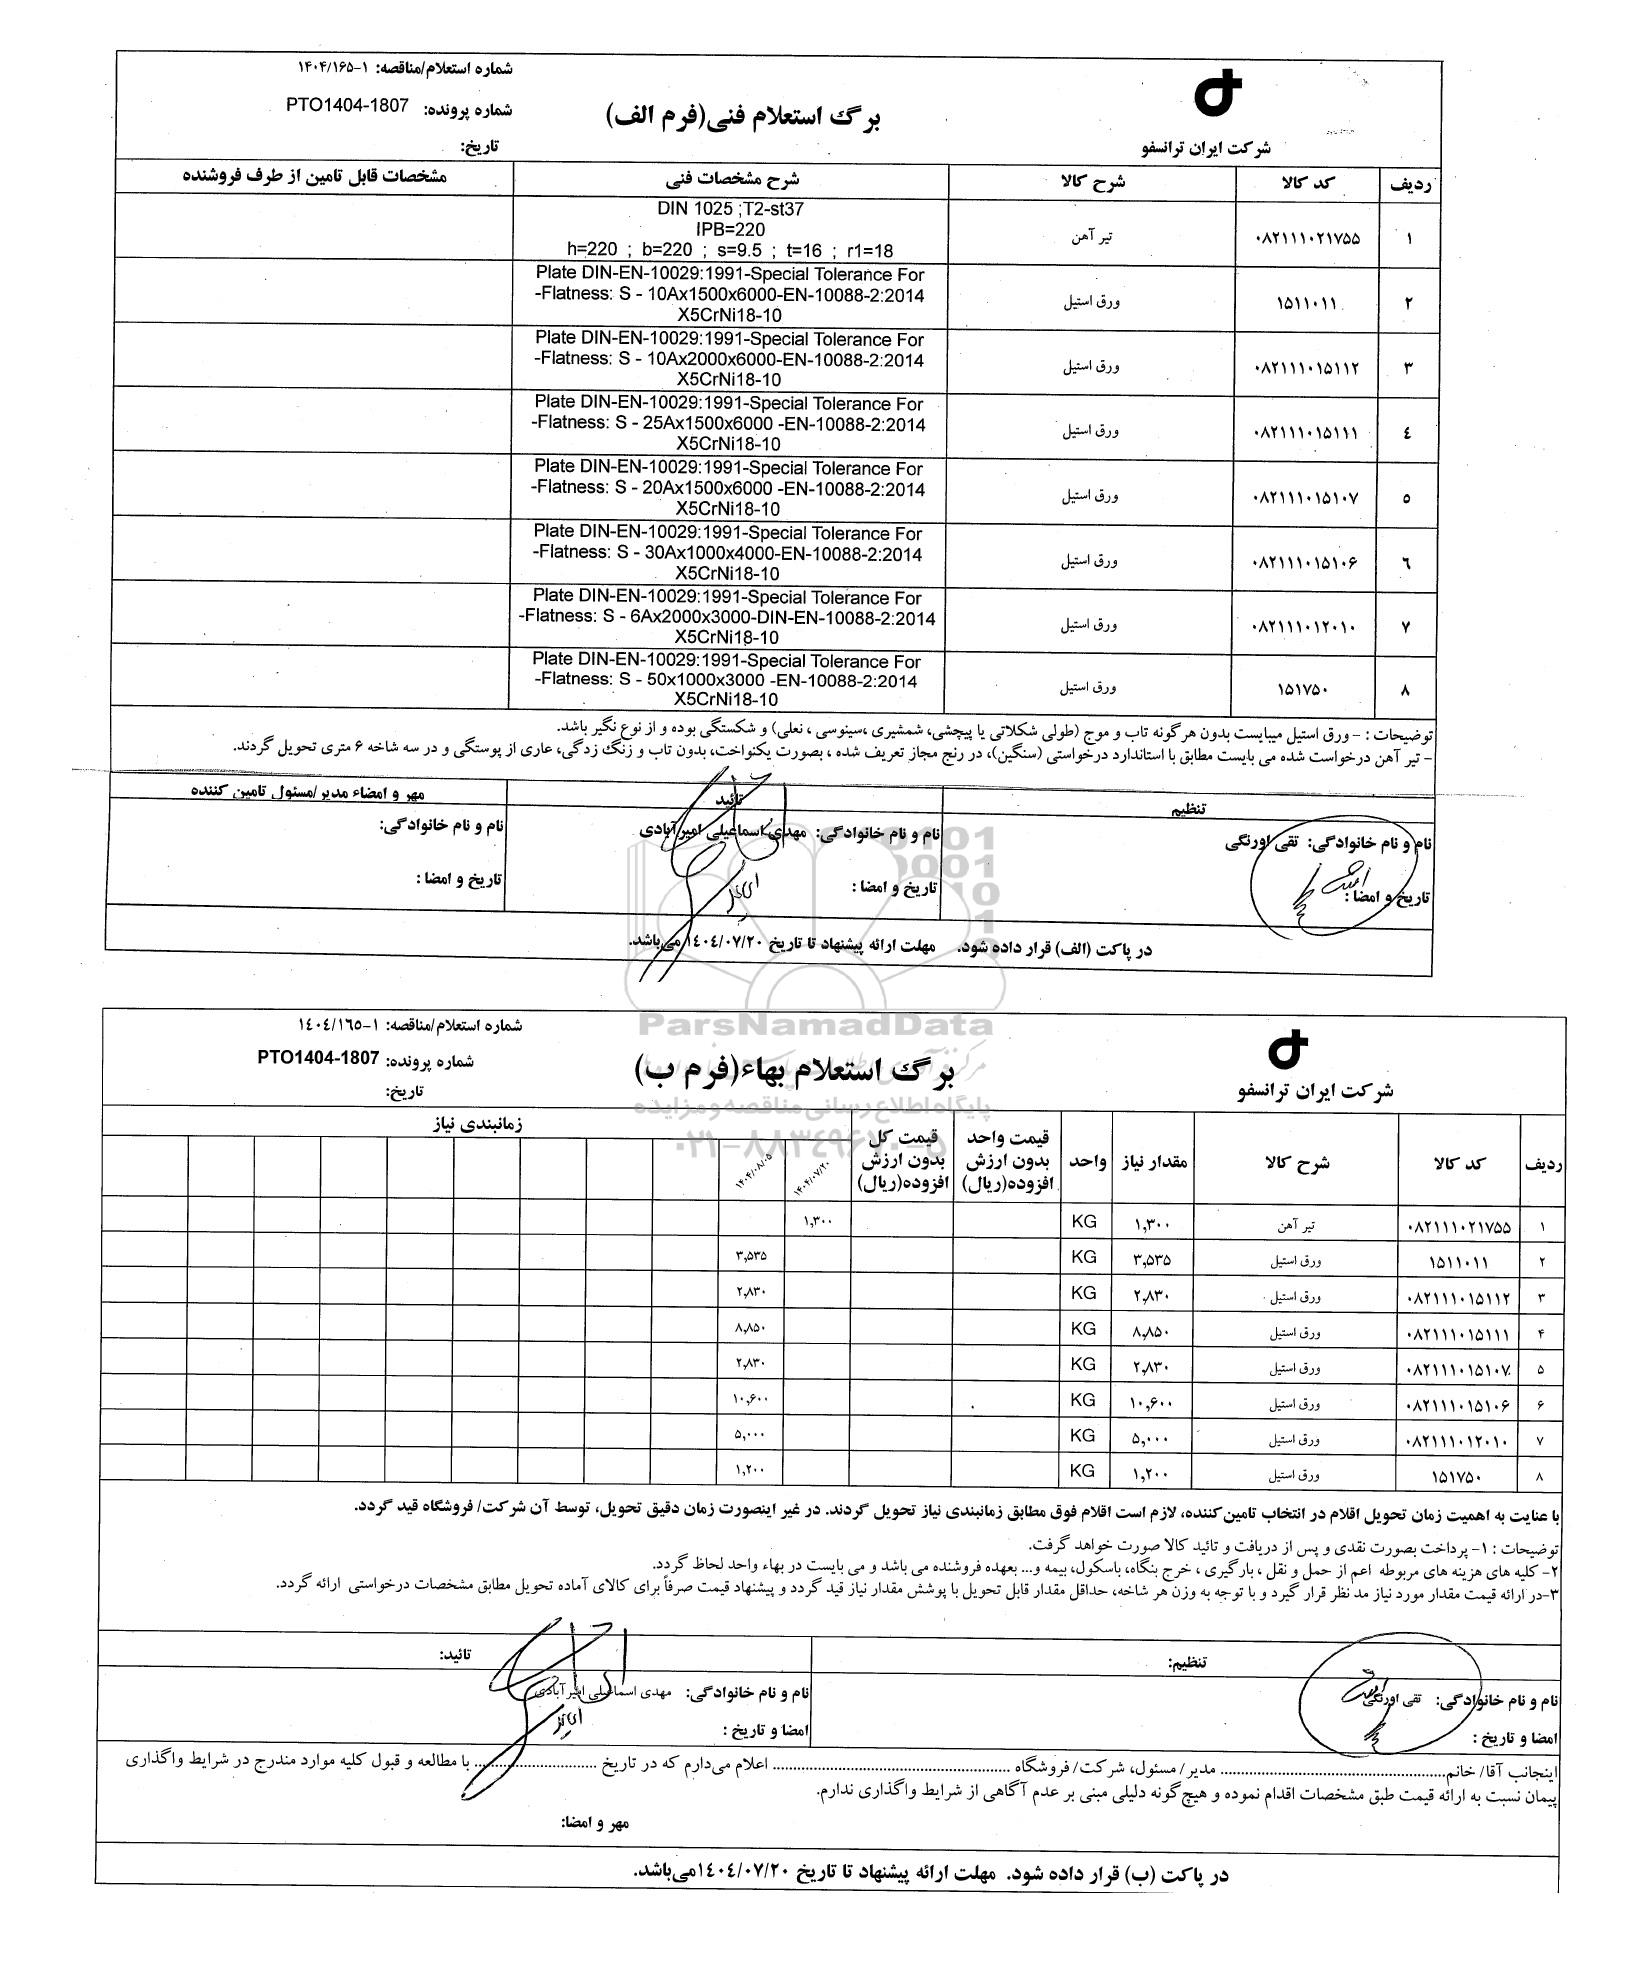 شماره استعلام/مناقصه: ۱-۱۴۰۴/۱۶۵
برگ استعلام فنی(فرم الف)
شماره پرونده: PTO1404-1807
شرکت ایران ترانسفو
تاریخ:
ردیف | کد کالا | شرح کالا | شرح مشخصات فنی | مشخصات قابل تامین از طرف فروشنده
۱ | ۰۸۲۱۱۱۰۲۱۷۵۵ | تیر آهن | DIN 1025 ;T2-st37
IPB=220
h=220 ; b=220 ; s=9.5 ; t=16 ; r1=18
۲ | ۱۵۱۱۰۱۱ | ورق استیل | Plate DIN-EN-10029:1991-Special Tolerance For
-Flatness: S - 10Ax1500x6000-EN-10088-2:2014
X5CrNi18-10
۳ | ۰۸۲۱۱۱۰۱۵۱۱۲ | ورق استیل | Plate DIN-EN-10029:1991-Special Tolerance For
-Flatness: S - 10Ax2000x6000-EN-10088-2:2014
X5CrNi18-10
٤ | ۰۸۲۱۱۱۰۱۵۱۱۱ | ورق استیل | Plate DIN-EN-10029:1991-Special Tolerance For
-Flatness: S - 25Ax1500x6000 -EN-10088-2:2014
X5CrNi18-10
۵ | ۰۸۲۱۱۱۰۱۵۱۰۷ | ورق استیل | Plate DIN-EN-10029:1991-Special Tolerance For
-Flatness: S - 20Ax1500x6000 -EN-10088-2:2014
X5CrNi18-10
٦ | ۰۸۲۱۱۱۰۱۵۱۰۶ | ورق استیل | Plate DIN-EN-10029:1991-Special Tolerance For
-Flatness: S - 30Ax1000x4000-EN-10088-2:2014
X5CrNi18-10
۷ | ۰۸۲۱۱۱۰۱۲۰۱۰ | ورق استیل | Plate DIN-EN-10029:1991-Special Tolerance For
-Flatness: S - 6Ax2000x3000-DIN-EN-10088-2:2014
X5CrNi18-10
۸ | ۱۵۱۷۵۰ | ورق استیل | Plate DIN-EN-10029:1991-Special Tolerance For
-Flatness: S - 50x1000x3000 -EN-10088-2:2014
X5CrNi18-10
توضیحات : - ورق استیل میبایست بدون هرگونه تاب و موج (طولی شکلاتی یا پیچشی، شمشیری ،سینوسی ، نعلی) و شکستگی بوده و از نوع نگیر باشد.
- تیر آهن درخواست شده می بایست مطابق با استاندارد درخواستی (سنگین)، در رنج مجاز تعریف شده ، بصورت یکنواخت، بدون تاب و زنگ زدگی، عاری از پوستگی و در سه شاخه ۶ متری تحویل گردند.
تنظیم | تائید | مهر و امضاء مدیر/مسئول تامین کننده
نام و نام خانوادگی: تقی اورنگی | نام و نام خانوادگی: مهدی اسماعیلی امیرآبادی | نام و نام خانوادگی:
تاریخ و امضا : | تاریخ و امضا : | تاریخ و امضا :
در پاکت (الف) قرار داده شود. مهلت ارائه پیشنهاد تا تاریخ ۱٤۰٤/۰۷/۲۰ می‌باشد.
ParsNamadData
پایگاه اطلاع رسانی مناقصه و مزایده
۰۲۱-۸۸۳۴۹۶۷۰-۵
شماره استعلام/مناقصه: ۱-۱٤۰٤/۱٦۵
برگ استعلام بهاء(فرم ب)
شماره پرونده: PTO1404-1807
شرکت ایران ترانسفو
تاریخ:
ردیف | کد کالا | شرح کالا | مقدار نیاز | واحد | قیمت واحد بدون ارزش افزوده(ریال) | قیمت کل بدون ارزش افزوده(ریال) | زمانبندی نیاز
۱۴۰۴/۰۷/۲۰ | ۱۴۰۴/۰۸/۰۵
۱ | ۰۸۲۱۱۱۰۲۱۷۵۵ | تیر آهن | ۱,۳۰۰ | KG | ۱,۳۰۰
۲ | ۱۵۱۱۰۱۱ | ورق استیل | ۳,۵۳۵ | KG | ۳,۵۳۵
۳ | ۰۸۲۱۱۱۰۱۵۱۱۲ | ورق استیل | ۲,۸۳۰ | KG | ۲,۸۳۰
۴ | ۰۸۲۱۱۱۰۱۵۱۱۱ | ورق استیل | ۸,۸۵۰ | KG | ۸,۸۵۰
۵ | ۰۸۲۱۱۱۰۱۵۱۰۷ | ورق استیل | ۲,۸۳۰ | KG | ۲,۸۳۰
۶ | ۰۸۲۱۱۱۰۱۵۱۰۶ | ورق استیل | ۱۰,۶۰۰ | KG | ۱۰,۶۰۰
۷ | ۰۸۲۱۱۱۰۱۲۰۱۰ | ورق استیل | ۵,۰۰۰ | KG | ۵,۰۰۰
۸ | ۱۵۱۷۵۰ | ورق استیل | ۱,۲۰۰ | KG | ۱,۲۰۰
با عنایت به اهمیت زمان تحویل اقلام در انتخاب تامین‌کننده، لازم است اقلام فوق مطابق زمانبندی نیاز تحویل گردند. در غیر اینصورت زمان دقیق تحویل، توسط آن شرکت/ فروشگاه قید گردد.
توضیحات : ۱- پرداخت بصورت نقدی و پس از دریافت و تائید کالا صورت خواهد گرفت.
۲- کلیه های هزینه های مربوطه اعم از حمل و نقل ، بارگیری ، خرج بنگاه، باسکول، بیمه و... بعهده فروشنده می باشد و می بایست در بهاء واحد لحاظ گردد.
۳-در ارائه قیمت مقدار مورد نیاز مد نظر قرار گیرد و با توجه به وزن هر شاخه، حداقل مقدار قابل تحویل با پوشش مقدار نیاز قید گردد و پیشنهاد قیمت صرفاً برای کالای آماده تحویل مطابق مشخصات درخواستی ارائه گردد.
تنظیم: | تائید:
نام و نام خانوادگی: تقی اورنگی | نام و نام خانوادگی: مهدی اسماعیلی امیرآبادی
امضا و تاریخ : | امضا و تاریخ :
اینجانب آقا/ خانم........................ مدیر/ مسئول، شرکت/ فروشگاه ........................ اعلام می‌دارم که در تاریخ ................ با مطالعه و قبول کلیه موارد مندرج در شرایط واگذاری
پیمان نسبت به ارائه قیمت طبق مشخصات اقدام نموده و هیچ‌گونه دلیلی مبنی بر عدم آگاهی از شرایط واگذاری ندارم.
مهر و امضا:
در پاکت (ب) قرار داده شود. مهلت ارائه پیشنهاد تا تاریخ ۱٤۰٤/۰۷/۲۰می‌باشد.